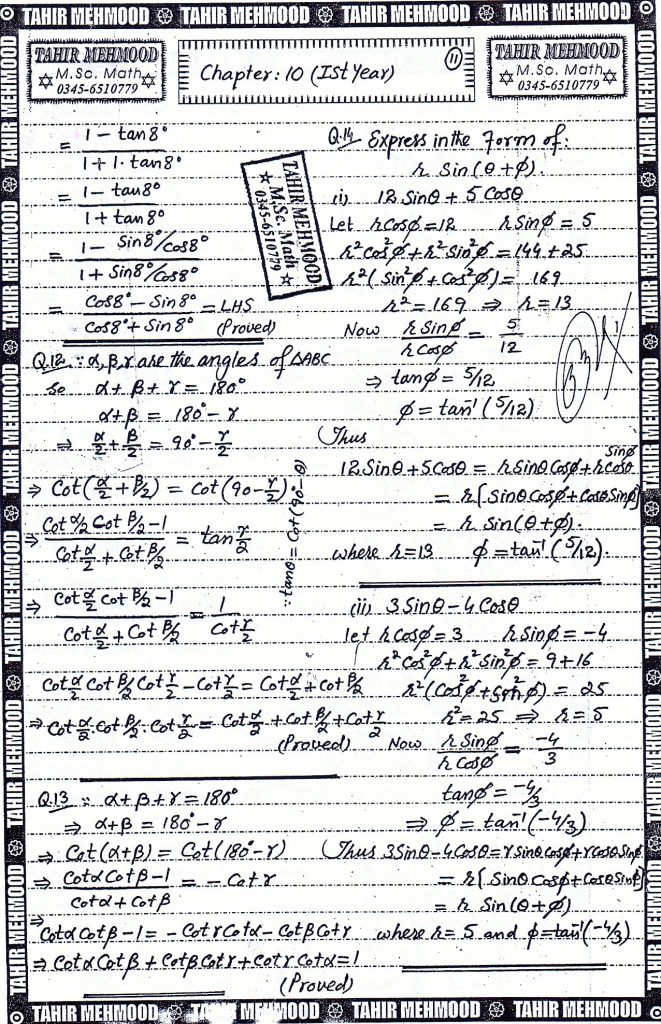 TAHIR MEHMOOD TAHIR MEHMOOD TAHIR MEHMOOD TAHIR MEHMOOD
TAHIR MEHMOOD
M.Sc. Math
0345-6510779
Chapter: 10 (Ist Year)
11
TAHIR MEHMOOD
M.Sc. Math
0345-6510779
= (1 - tan8°)/(1 + 1. tan8°)
= (1 - tan8°)/(1 + tan8°)
= (1 - Sin8°/Cos8°)/(1 + Sin8°/Cos8°)
= (Cos8° - Sin8°)/(Cos8° + Sin8°) = LHS
(Proved)
TAHIR MEHMOOD
M.Sc. Math
0345-6510779
Q.12 ∵ α, β, γ are the angles of ΔABC
so α + β + γ = 180°
α + β = 180° - γ
⇒ α/2 + β/2 = 90° - γ/2
⇒ Cot(α/2 + β/2) = Cot(90 - γ/2)
⇒ (Cot α/2 Cot β/2 - 1)/(Cot α/2 + Cot β/2) = tan γ/2
∵ tanθ = Cot(90° - θ)
⇒ (Cot α/2 Cot β/2 - 1)/(Cot α/2 + Cot β/2) = 1/(Cot γ/2)
Cot α/2 Cot β/2 Cot γ/2 - Cot γ/2 = Cot α/2 + Cot β/2
⇒ Cot α/2 . Cot β/2 . Cot γ/2 = Cot α/2 + Cot β/2 + Cot γ/2
(Proved)
Q.13 ∵ α + β + γ = 180°
⇒ α + β = 180° - γ
⇒ Cot(α + β) = Cot(180° - γ)
⇒ (Cotα Cotβ - 1)/(Cotα + Cotβ) = - Cotγ
⇒
Cotα Cotβ - 1 = - Cotγ Cotα - Cotβ Cotγ
⇒ Cotα Cotβ + Cotβ Cotγ + Cotγ Cotα = 1
(Proved)
Q.14 Express in the Form of:
r Sin(θ + φ).
(i) 12 Sinθ + 5 Cosθ
Let r Cosφ = 12 r Sinφ = 5
r² Cos²φ + r² Sin²φ = 144 + 25
r² (Sin²φ + Cos²φ) = 169
r² = 169 ⇒ r = 13
Now (r Sinφ)/(r Cosφ) = 5/12
⇒ tanφ = 5/12
φ = tan⁻¹(5/12)
Thus
12 Sinθ + 5 Cosθ = r Sinθ Cosφ + r Cosθ Sinφ
= r[Sinθ Cosφ + Cosθ Sinφ]
= r Sin(θ + φ).
where r = 13 φ = tan⁻¹(5/12).
(ii) 3 Sinθ - 4 Cosθ
let r Cosφ = 3 r Sinφ = -4
r² Cos²φ + r² Sin²φ = 9 + 16
r² (Cos²φ + Sin²φ) = 25
r² = 25 ⇒ r = 5
Now (r Sinφ)/(r Cosφ) = -4/3
tanφ = -4/3
⇒ φ = tan⁻¹(-4/3)
Thus 3 Sinθ - 4 Cosθ = r Sinθ Cosφ + r Cosθ Sinφ
= r[Sinθ Cosφ + Cosθ Sinφ]
= r Sin(θ + φ)
where r = 5 and φ = tan⁻¹(-4/3)
TAHIR MEHMOOD TAHIR MEHMOOD TAHIR MEHMOOD TAHIR MEHMOOD
TAHIR MEHMOOD TAHIR MEHMOOD TAHIR MEHMOOD TAHIR MEHMOOD TAHIR MEHMOOD TAHIR MEHMOOD
TAHIR MEHMOOD TAHIR MEHMOOD TAHIR MEHMOOD TAHIR MEHMOOD TAHIR MEHMOOD TAHIR MEHMOOD